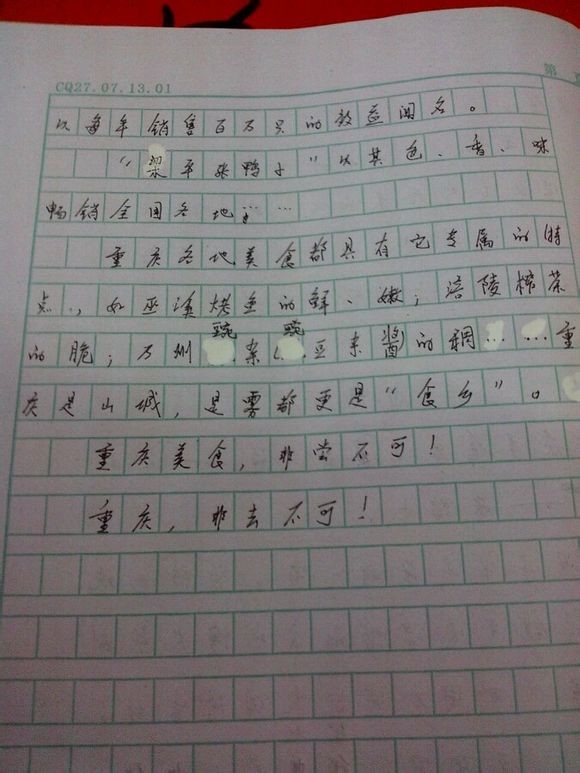 CQ27.07.13.01
第
以每年销售百万只的效益闻名。
“梁平张鸭子”以其色、香、味
畅销全国各地……
重庆各地美食都具有它专属的特
点，如巫溪烤鱼的鲜、嫩；涪陵榨菜
的脆；万州豌杂豌豆杂酱的稠……重
庆是山城，是雾都更是“食乡”。
重庆美食，非尝不可！
重庆，非去不可！